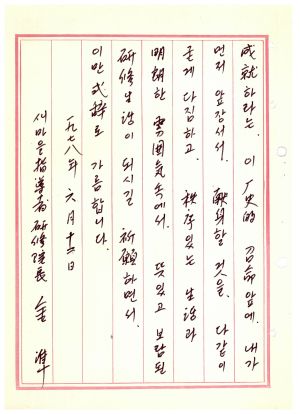 成就하라는. 이 歷史的 召命앞에. 내가
먼저 앞장서서. 献身할 것을. 다같이
굳게 다짐하고. 秩序있는 生活과
明朗한 雰囲氣속에서. 뜻있고 보람된
研修生活이 되시길 祈願하면서.
이만 式辞로 가름합니다.
一九七八年 六月 十二日
새마을指導者 研修院長 金 準